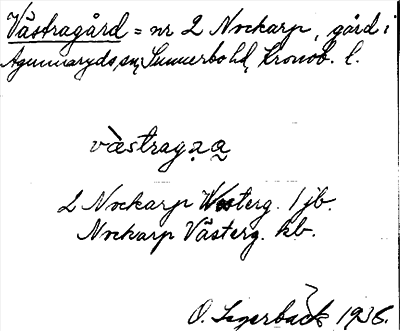 Västragård = nr 2 Nockarp, gård i
Agunnaryds sn, Sunnerbo hd, Kronob. l.
västragạ ạ
2 Nockarp Westerg. 1 jb.
Nockarp Västerg. kb.
O. Lagerbäck 1936.